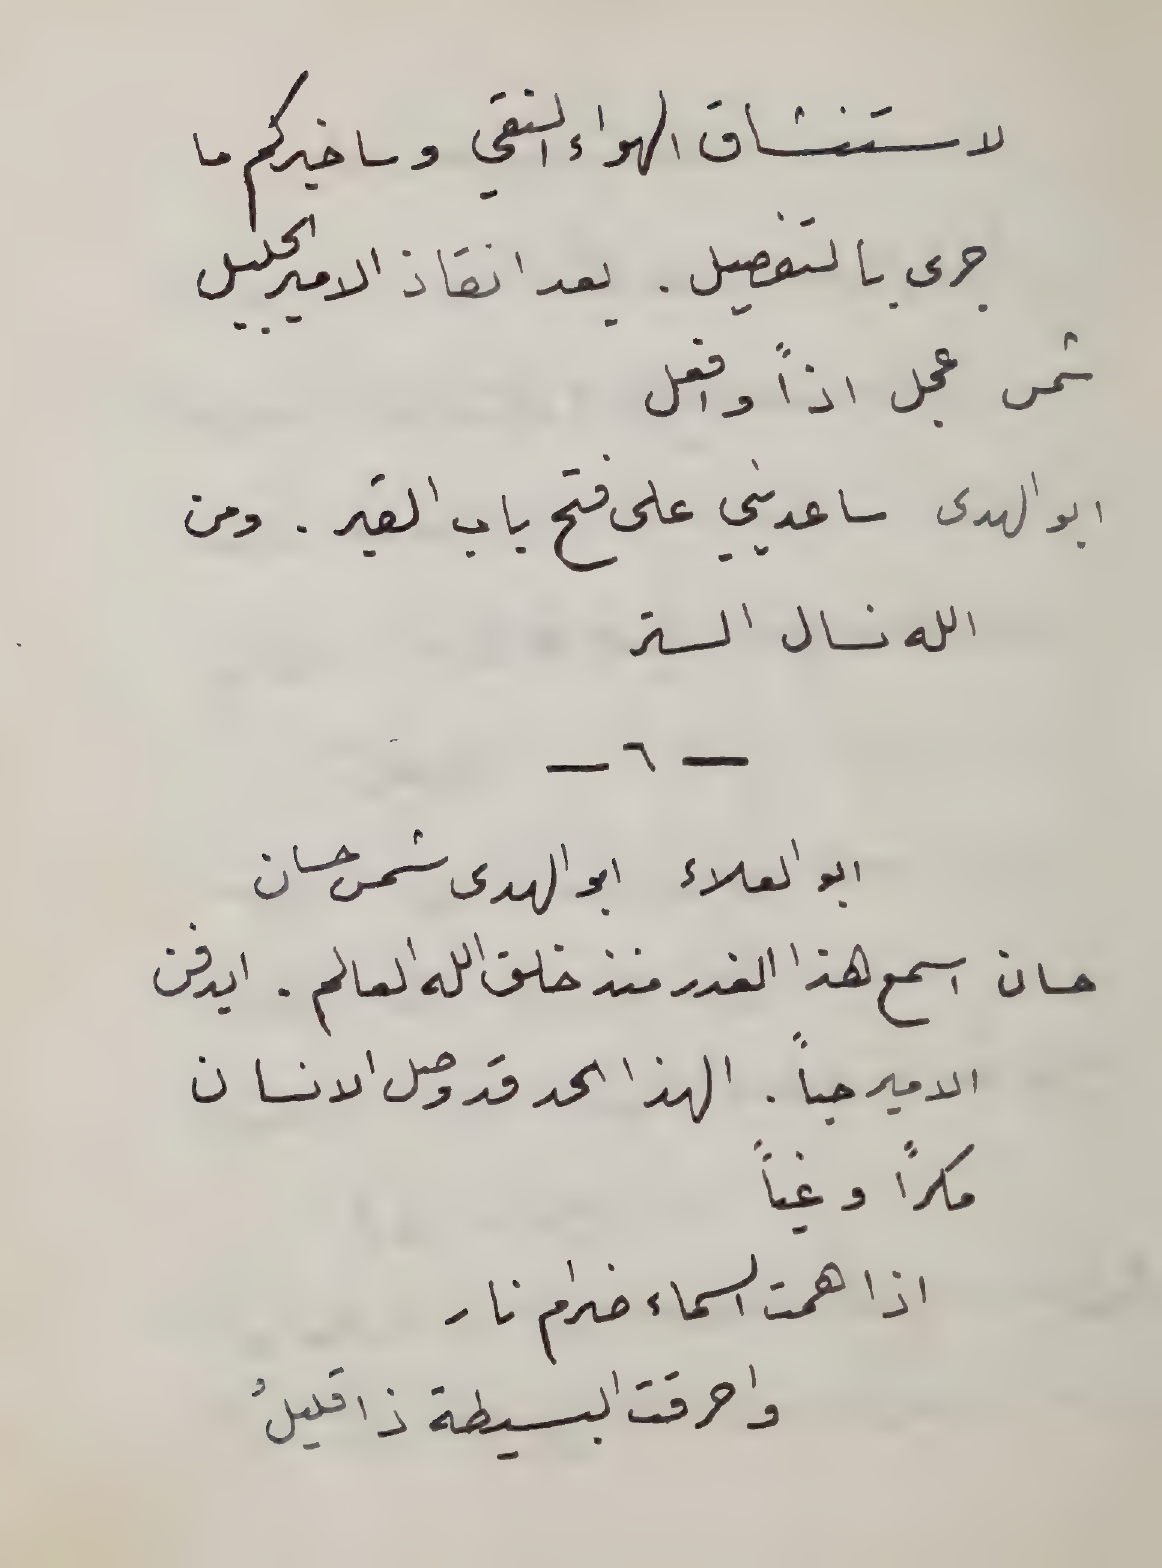 لاستنشاق الهواء النقي وساخبركم ما
جرى بالتفصيل . بعد انقاذ الامير الجليل
شمس عجل اذاً وافعل
ابو الهدى ساعديني على فتح باب القبر . ومن
الله نسال الستر
— ٦ —
ابو العلاء ابو الهدى شمس حسان
حسان اسمع هذا الغدر منذ خلق الله العالم . ايدفن
الامير حياً . الهذا الحد قد وصل الانسان
مكراً وغياً
اذا همت السماء ضرام نار
واحرقت البسيطة ذا قليلُ